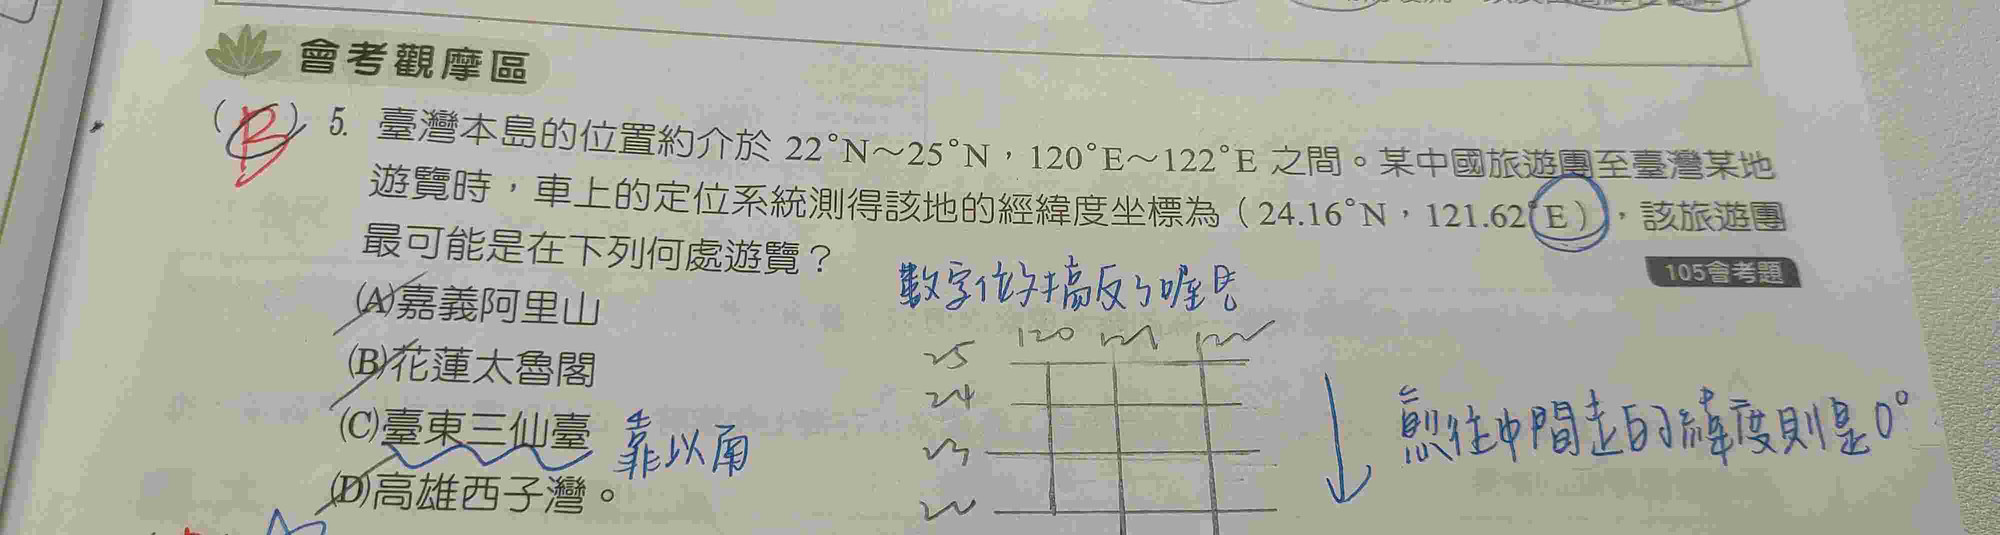 會考觀摩區
(B) 5. 臺灣本島的位置約介於 22°N～25°N，120°E～122°E 之間。某中國旅遊團至臺灣某地
遊覽時，車上的定位系統測得該地的經緯度坐標為（24.16°N，121.62°E），該旅遊團
最可能是在下列何處遊覽？
105會考題
數字位搞反了喔
(A)嘉義阿里山
(B)花蓮太魯閣
(C)臺東三仙臺
靠以南
(D)高雄西子灣。
120 121 122
25
24
23
22
往中間走的緯度則是0°